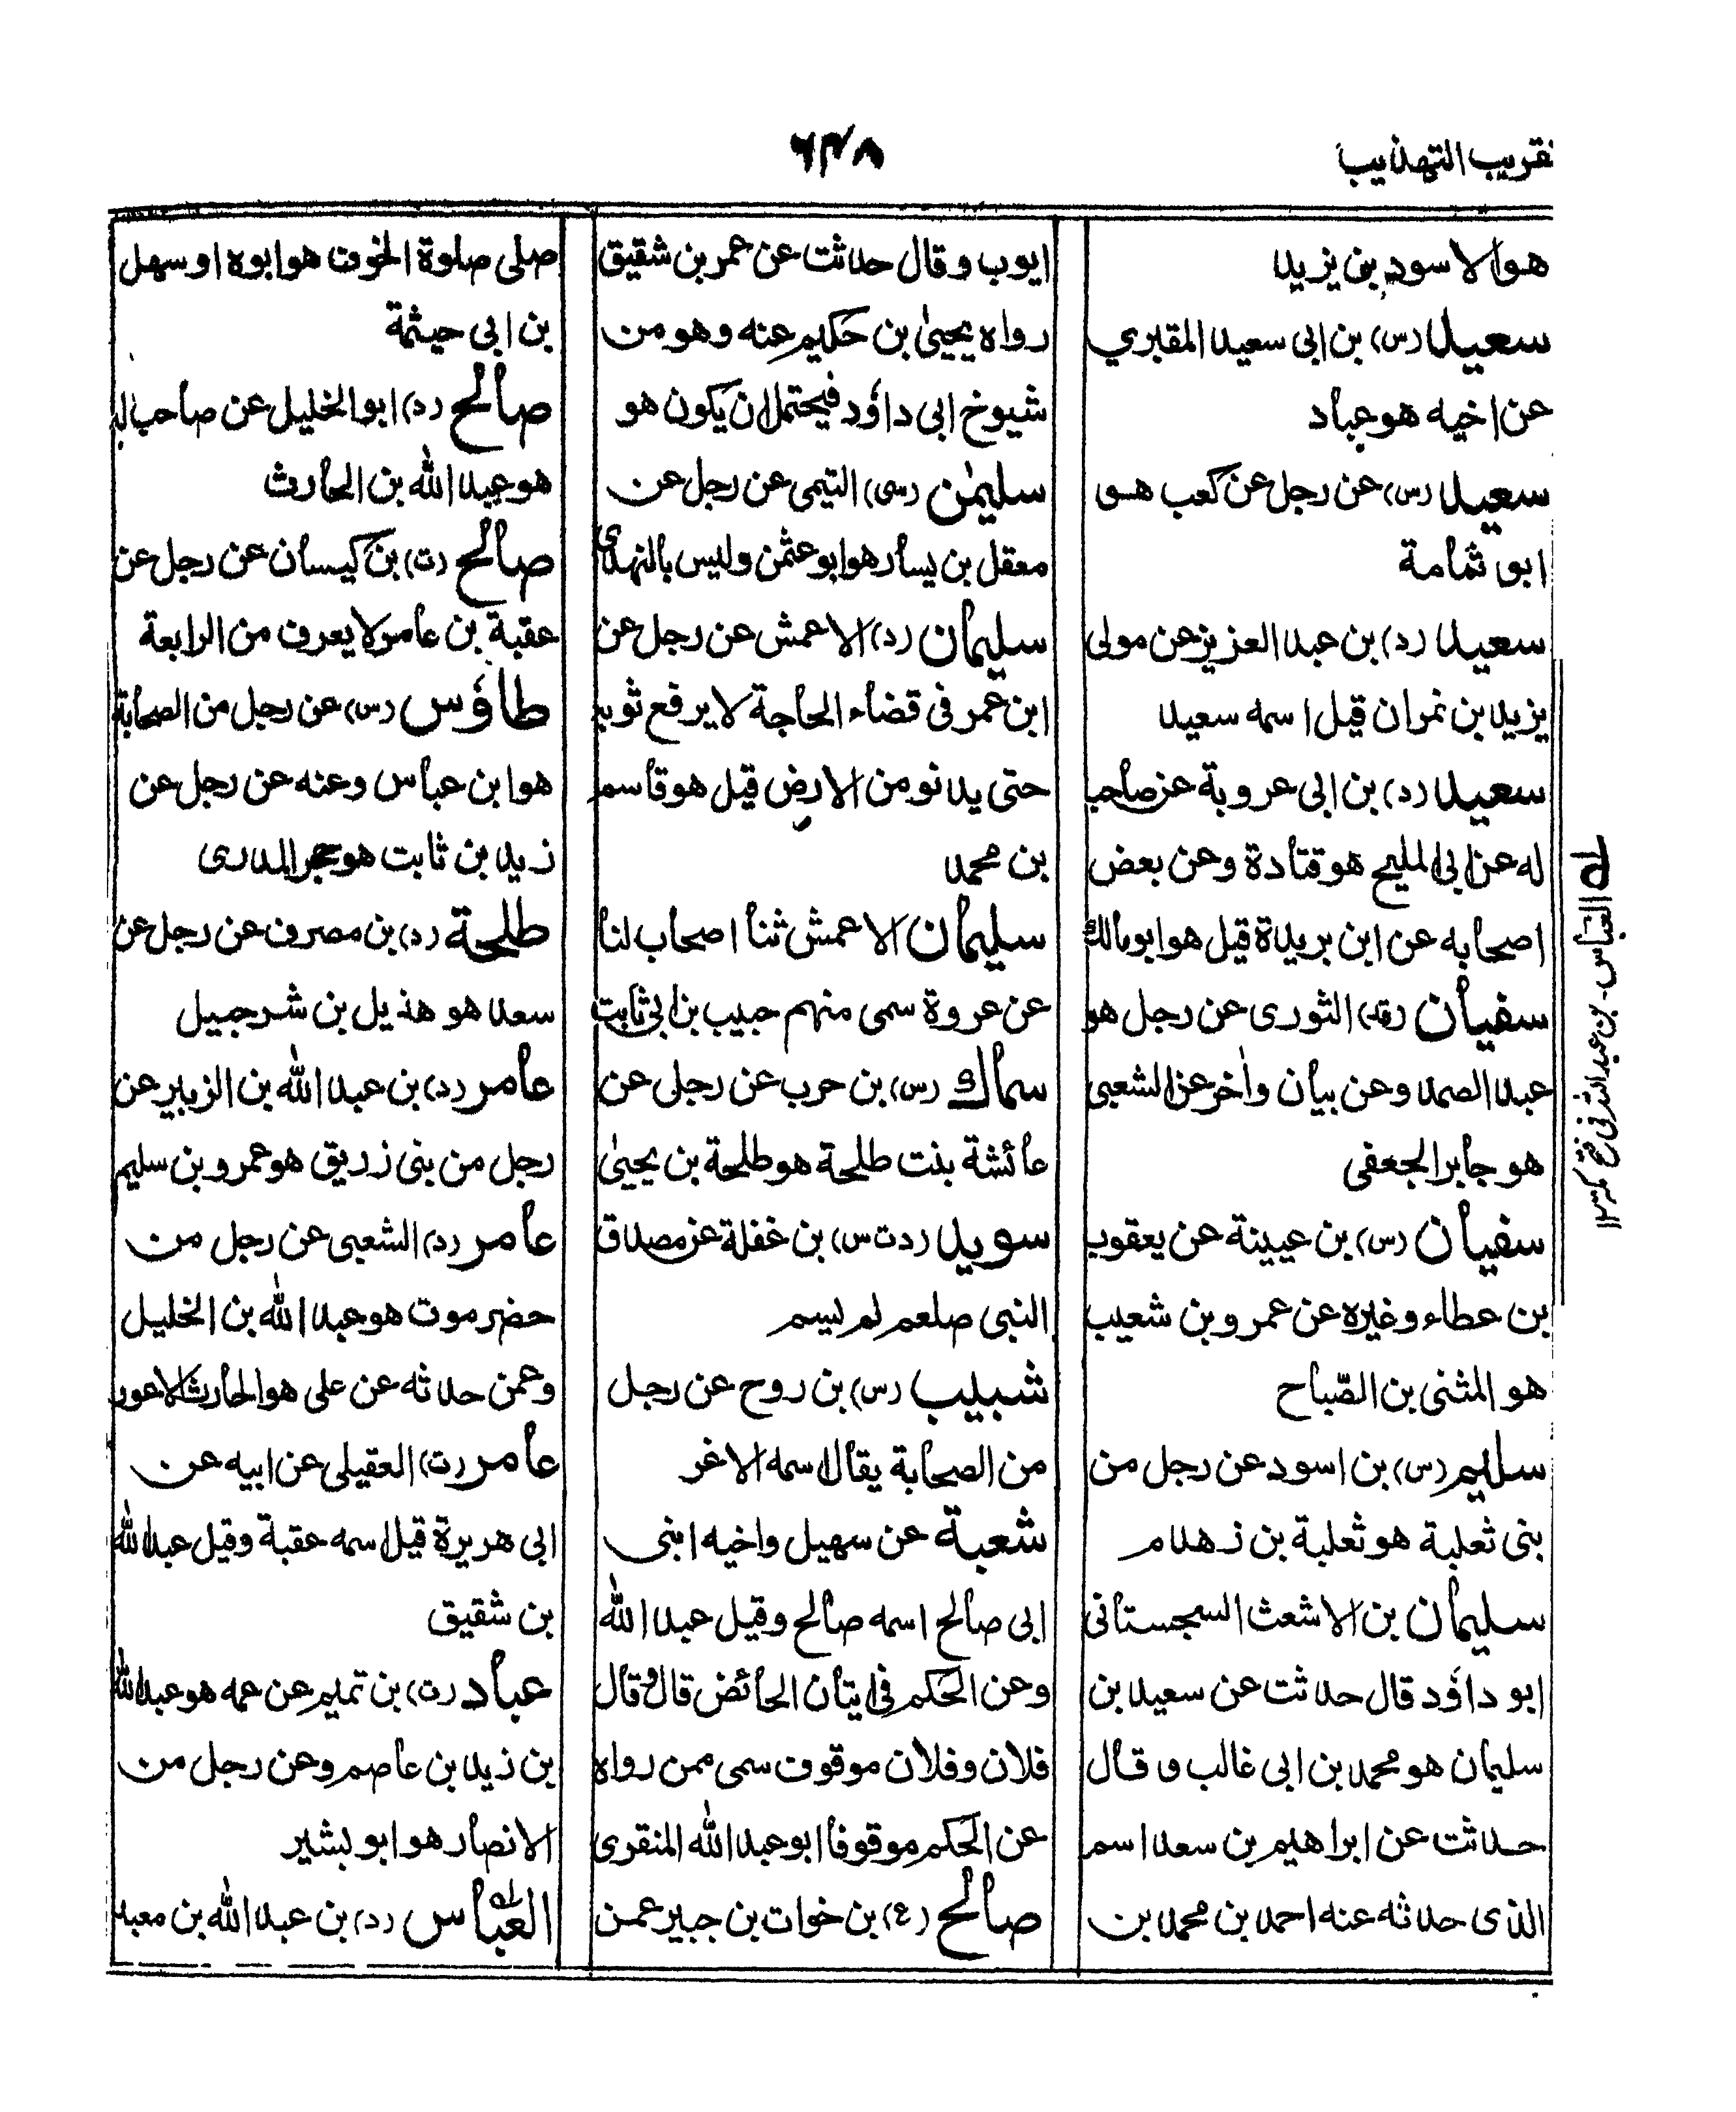 تقريب التهذيب
٦٣٨
هو الاسود بن يزيد
سعيد (س) بن ابى سعيد المقبري
عن اخيه هو عباد
سعيد (س) عن رجل عن كعب هو
ابو ثمامة
سعيد (د) بن عبد العزيز عن مولى
يزيد بن نمران قيل اسمه سعيد
سعيد (د) بن ابى عروبة عن صاحب
له عن ابى المليح هو قتادة وعن بعض
اصحابه عن ابن بريدة قيل هو ابو مالك
سفيان (قد) الثورى عن رجل هو
عبد الصمد وعن بيان وأخر عن الشعبى
هو جابر الجعفى
سفيان (س) بن عيينة عن يعقوب
بن عطاء وغيره عن عمرو بن شعيب
هو المثنى بن الصّباح
سليم (س) بن اسود عن رجل من
بنى ثعلبة هو ثعلبة بن زهدم
سليمان بن الاشعث السجستانى
ابو داؤد قال حدثت عن سعيد بن
سليمان هو محمد بن ابى غالب وقال
حدثت عن ابراهيم بن سعد اسم
الذى حدثه عنه احمد بن محمد بن
ايوب وقال حدثت عن عمر بن شقيق
رواه يحيىٰ بن حكيم عنه وهو من
شيوخ ابى داؤد فيحتمل ان يكون هو
سليمٰن (سى) التيمى عن رجل عن
معقل بن يسار هو ابو عثمن وليس بالنهدى
سليمان (د) الاعمش عن رجل عن
ابن عمر فى قضاء الحاجة لا يرفع ثوبه
حتى يدنو من الارض قيل هو قاسم
بن محمد
سليمان الاعمش ثنا اصحاب لنا
عن عروة سمى منهم حبيب بن ابى ثابت
سماك (س) بن حرب عن رجل عن
عائشة بنت طلحة هو طلحة بن يحيىٰ
سويد (د ت س) بن غفلة عن مصدق
النبى صلعم لم يسم
شبيب (س) بن روح عن رجل
من الصحابة يقال اسمه الاغر
شعبة عن سهيل واخيه ابنى
ابى صالح اسمه صالح وقيل عبد الله
وعن الحكم فى ايتان الحائض قال وقال
فلان وفلان موقوف سمى ممن رواه
عن الحكم موقوفا ابو عبد الله المنقرى
صالح (ع) بن خوات بن جبير عمن
صلى صلوة الخوف هو ابوه او سهل
بن ابى حيثمة
صالح (د) ابو الخليل عن صاحب له
هو عبد الله بن الحارث
صالح (ت) بن كيسان عن رجل عن
عقبة بن عامر لا يعرف من الرابعة
طاؤس (س) عن رجل من الصحابة
هو ابن عباس وعنه عن رجل عن
زيد بن ثابت هو حجر المدرى
طلحة (د) بن مصرف عن رجل عن
سعد هو هذيل بن شرحبيل
عامر (د) بن عبد الله بن الزبير عن
رجل من بنى زريق هو عمرو بن سليم
عامر (د) الشعبى عن رجل من
حضرموت هو عبد الله بن الخليل
وعمن حدثه عن على هو الحارث الاعور
عامر (ت) العقيلى عن ابيه عن
ابى هريرة قيل اسمه عقبة وقيل عبد الله
بن شقيق
عباد (ت) بن تميم عن عمه هو عبد الله
بن زيد بن عاصم وعن رجل من
الانصار هو ابو بشير
العبّاس (د) بن عبد الله بن معبد
له العبّاس - بن عبد الله فى فتح مكة ١٢